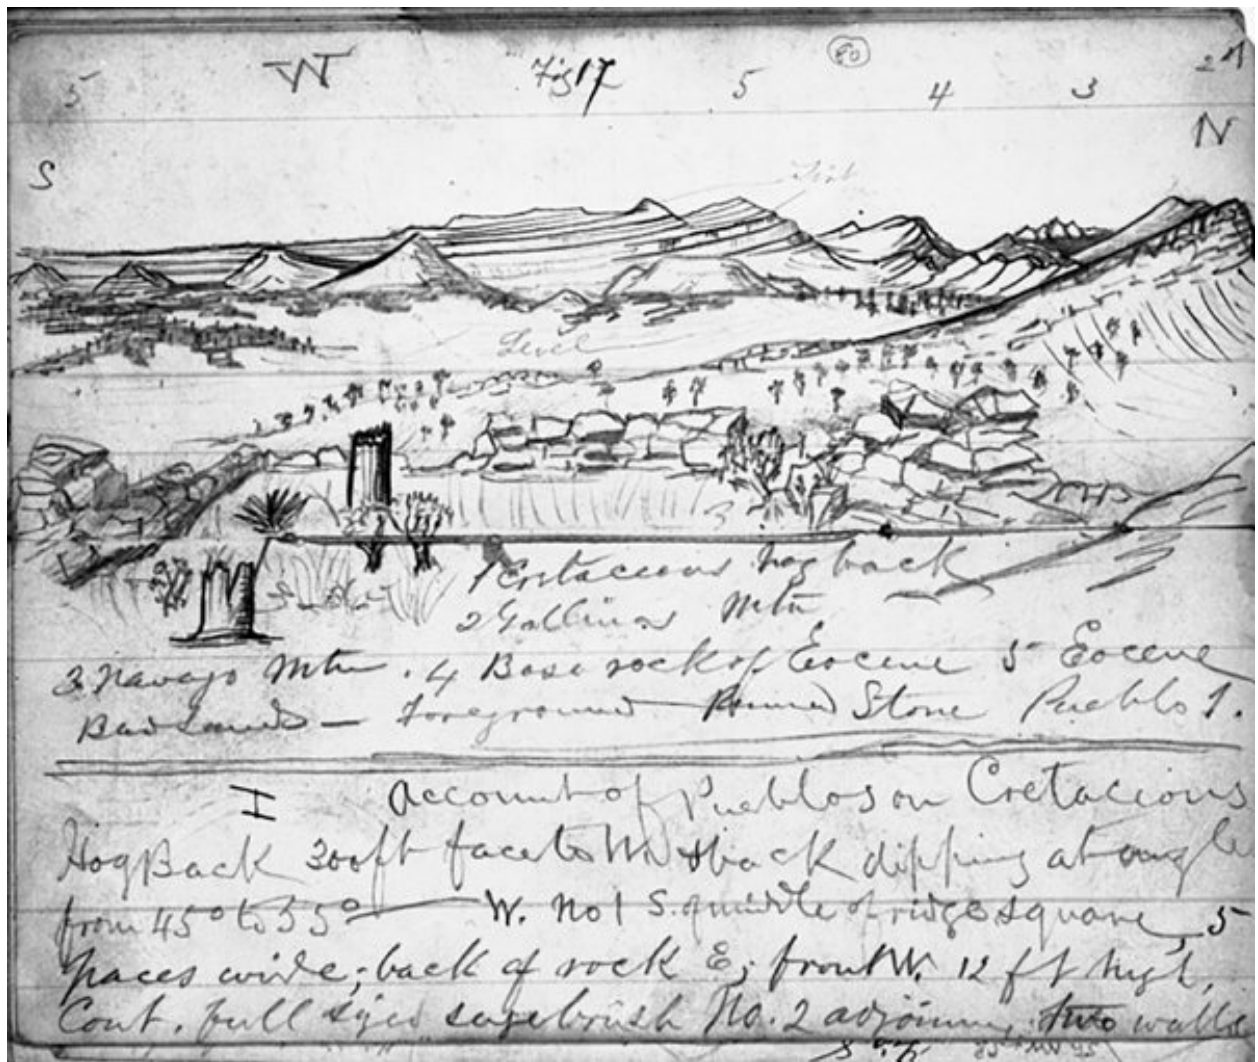 80
5 W Fig 17 5 4 3 2
S N
Level
1 Cretaceous hog back
2 Gallinas Mtn
3 Navajo Mtn. 4 Base rock of Eocene 5 Eocene
Bad Lands — Foreground Ruined Stone Pueblo 1.
I Account of Pueblos on Cretacious
Hog Back 300ft face to W. & back dipping at angle
from 45° to 55° — W. No 1 S. of middle of ridge square, 5
paces wide; back of rock E; front W. 12 ft high,
Cont. full sized sagebrush No. 2 adjoining, two walls